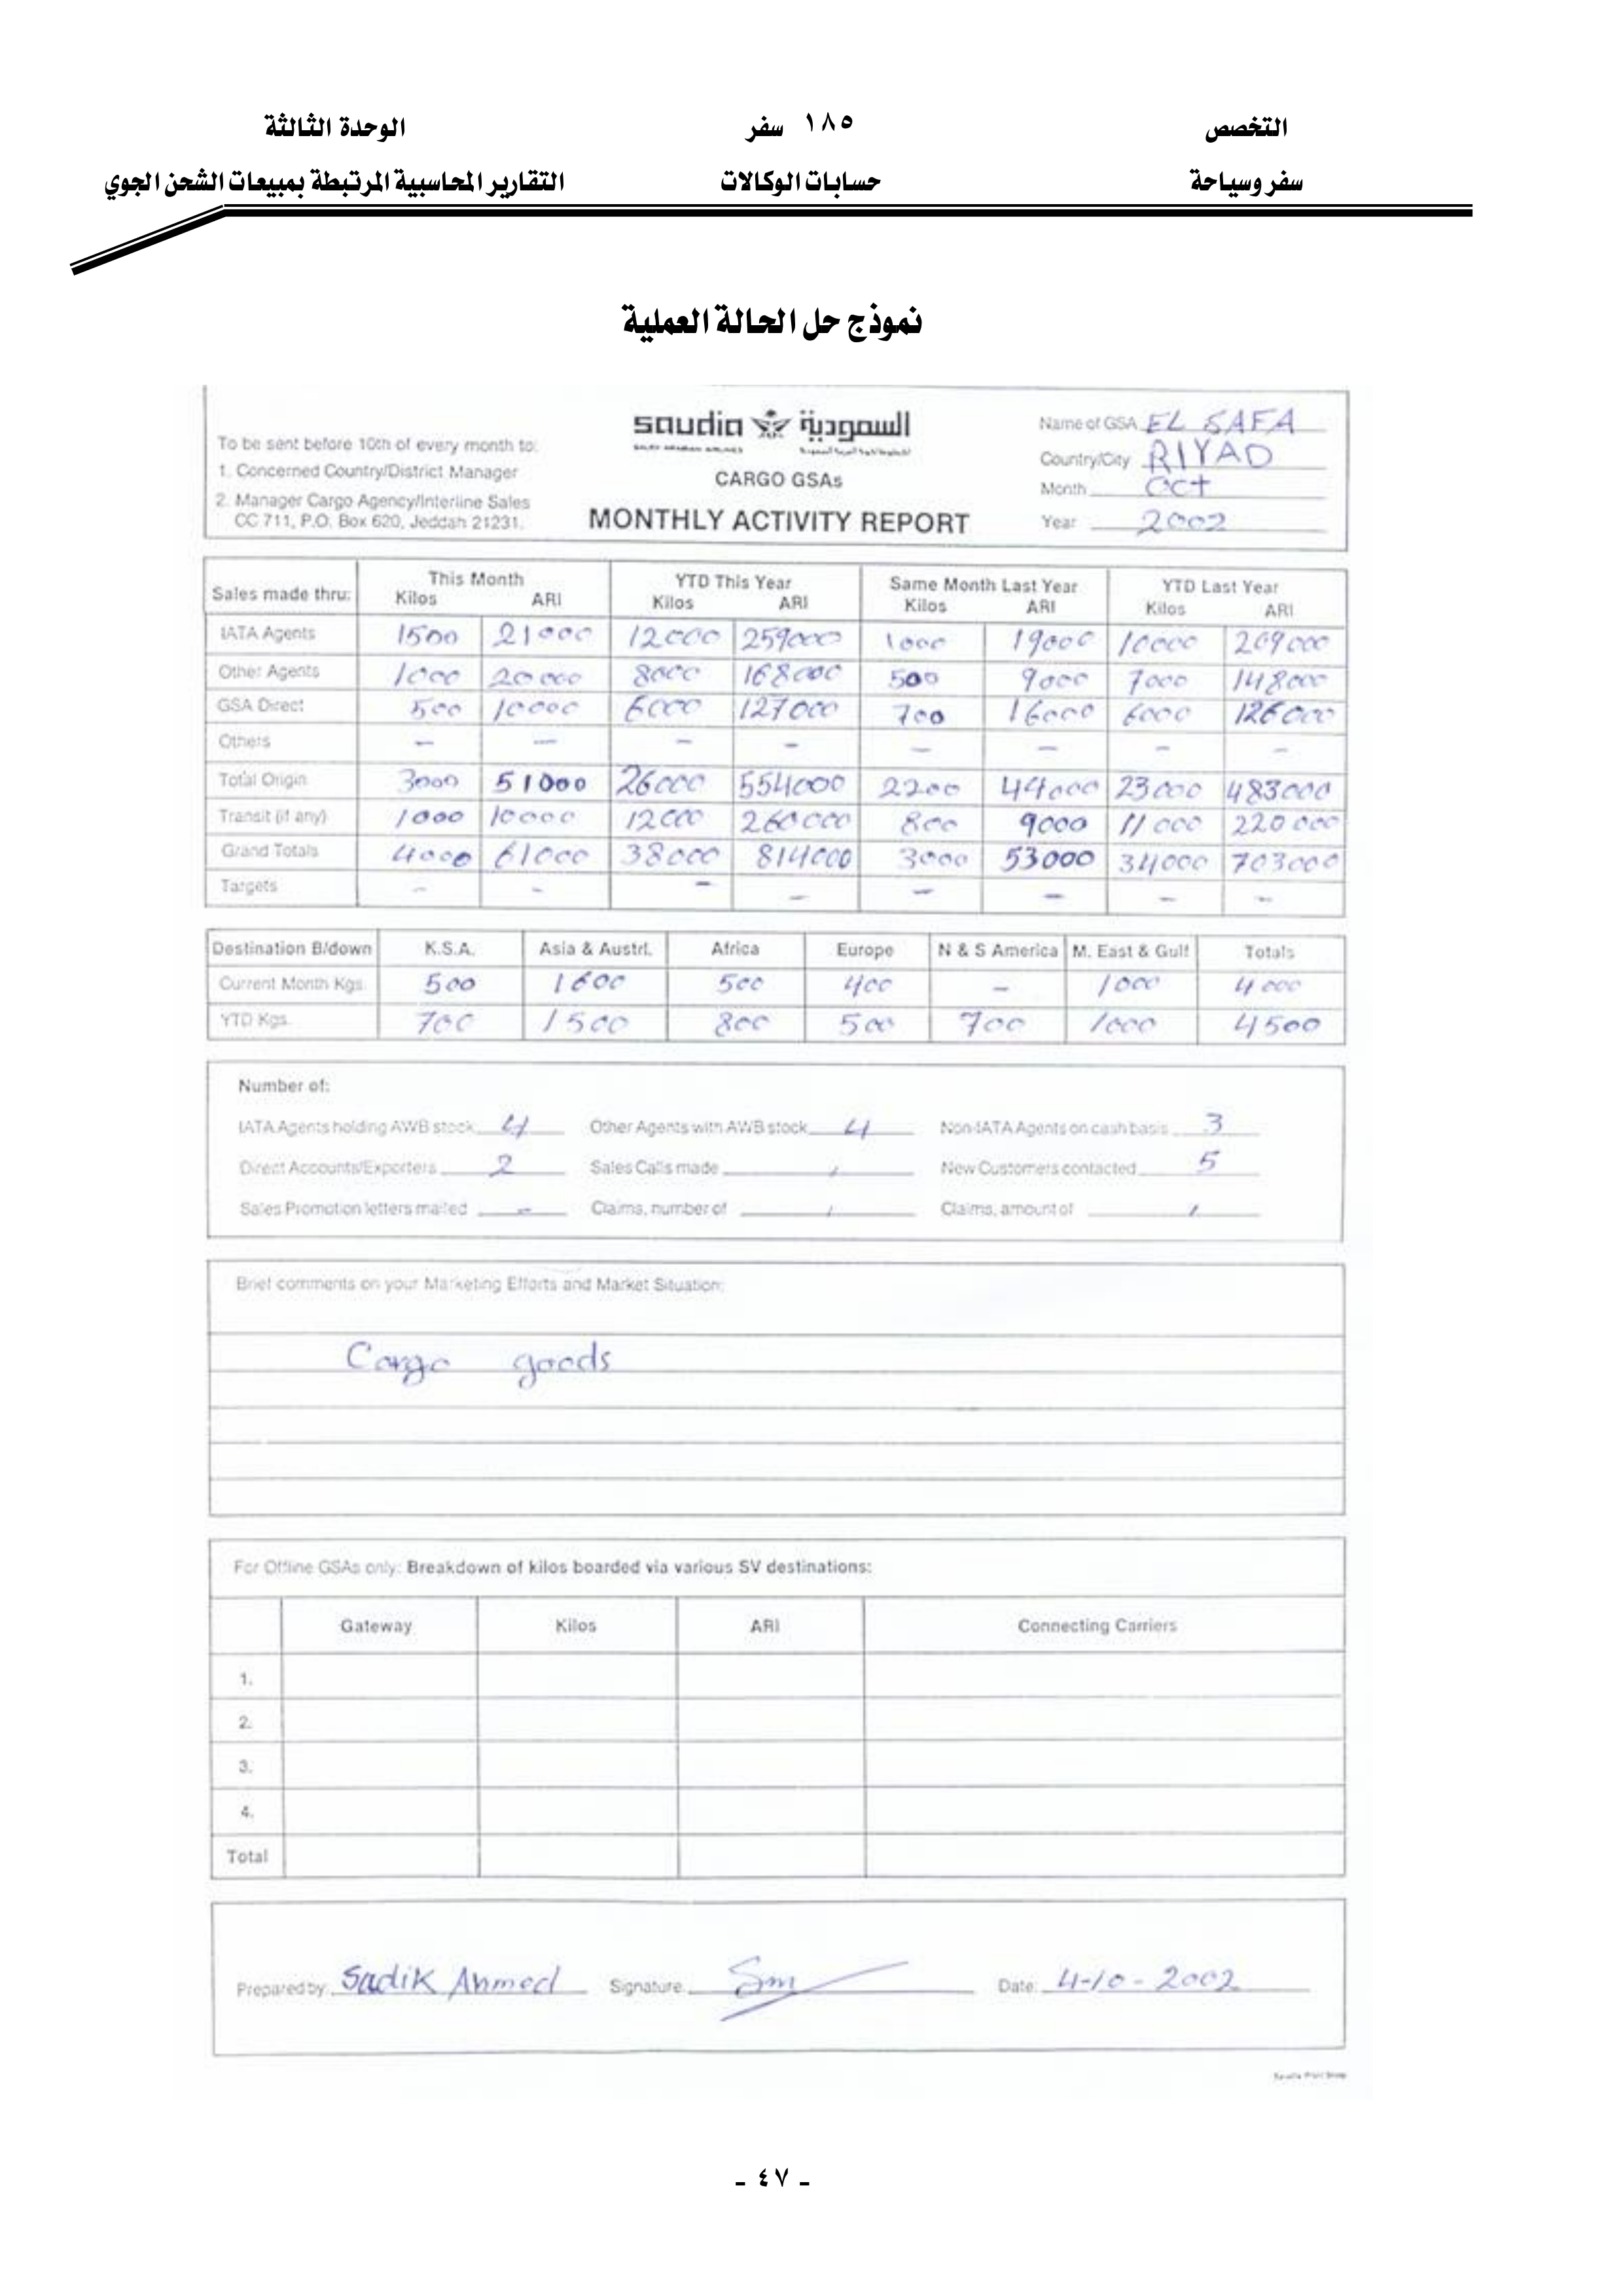 التخصص ١٨٥ سفر الوحدة الثالثة
سفر وسياحة حسابات الوكالات التقارير المحاسبية المرتبطة بمبيعات الشحن الجوي
نموذج حل الحالة العملية
To be sent before 10th of every month to:
1. Concerned Country/District Manager
2. Manager Cargo Agency/Interline Sales
CC 711, P.O. Box 620, Jeddah 21231.
saudia السعودية
SAUDI ARABIAN AIRLINES
CARGO GSAs
MONTHLY ACTIVITY REPORT
Name of GSA EL SAFA
Country/City RIYAD
Month Oct
Year 2002
Sales made thru: This Month YTD This Year Same Month Last Year YTD Last Year
Kilos ARI Kilos ARI Kilos ARI Kilos ARI
IATA Agents 1500 21000 12000 259000 1000 19000 10000 209000
Other Agents 1000 20000 8000 168000 500 9000 7000 148000
GSA Direct 500 10000 6000 127000 700 16000 6000 126000
Others - - - - - - - -
Total Origin 3000 51000 26000 554000 2200 44000 23000 483000
Transit (if any) 1000 10000 12000 260000 800 9000 11000 220000
Grand Totals 4000 61000 38000 814000 3000 53000 34000 703000
Targets - - - - - - - -
Destination B/down K.S.A. Asia & Austrl. Africa Europe N & S America M. East & Gulf Totals
Current Month Kgs. 500 1600 500 400 - 1000 4000
YTD Kgs. 700 1500 800 500 700 1000 4500
Number of:
IATA Agents holding AWB stock 4 Other Agents with AWB stock 4 Non-IATA Agents on cash basis 3
Direct Accounts/Exporters 2 Sales Calls made / New Customers contacted 5
Sales Promotion letters mailed - Claims, number of / Claims, amount of /
Brief comments on your Marketing Efforts and Market Situation:
Cargo goods
For Offline GSAs only: Breakdown of kilos boarded via various SV destinations:
Gateway Kilos ARI Connecting Carriers
1.
2.
3.
4.
Total
Prepared by: Sadik Ahmed Signature: Sm Date: 4-10-2002
- ٤٧ -